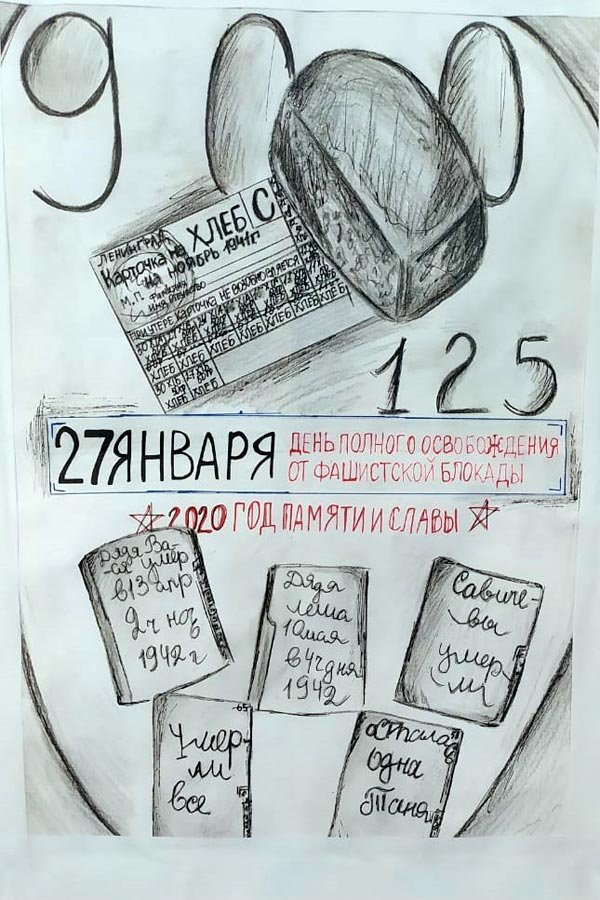 900
ЛЕНИНГРАД
Карточка на ХЛЕБ С
на НОЯБРЬ 1941г
М.П. Фамилия
имя отчество
ПРИ УТЕРЕ КАРТОЧКА НЕ ВОЗОБНОВЛЯЕТСЯ
ХЛЕБ ХЛЕБ ХЛЕБ ХЛЕБ ХЛЕБ
ХЛЕБ ХЛЕБ
125
27 ЯНВАРЯ
ДЕНЬ ПОЛНОГО ОСВОБОЖДЕНИЯ
ОТ ФАШИСТСКОЙ БЛОКАДЫ
2020 ГОД ПАМЯТИ И СЛАВЫ
Дядя Ва-
ся умер
в 13 апр
2 ч ноч
1942 г
Дядя
Леша
10 мая
в 4ч дня
1942
Савиче-
вы
умер-
ли
Умер-
ли
все
осталас
одна
Таня